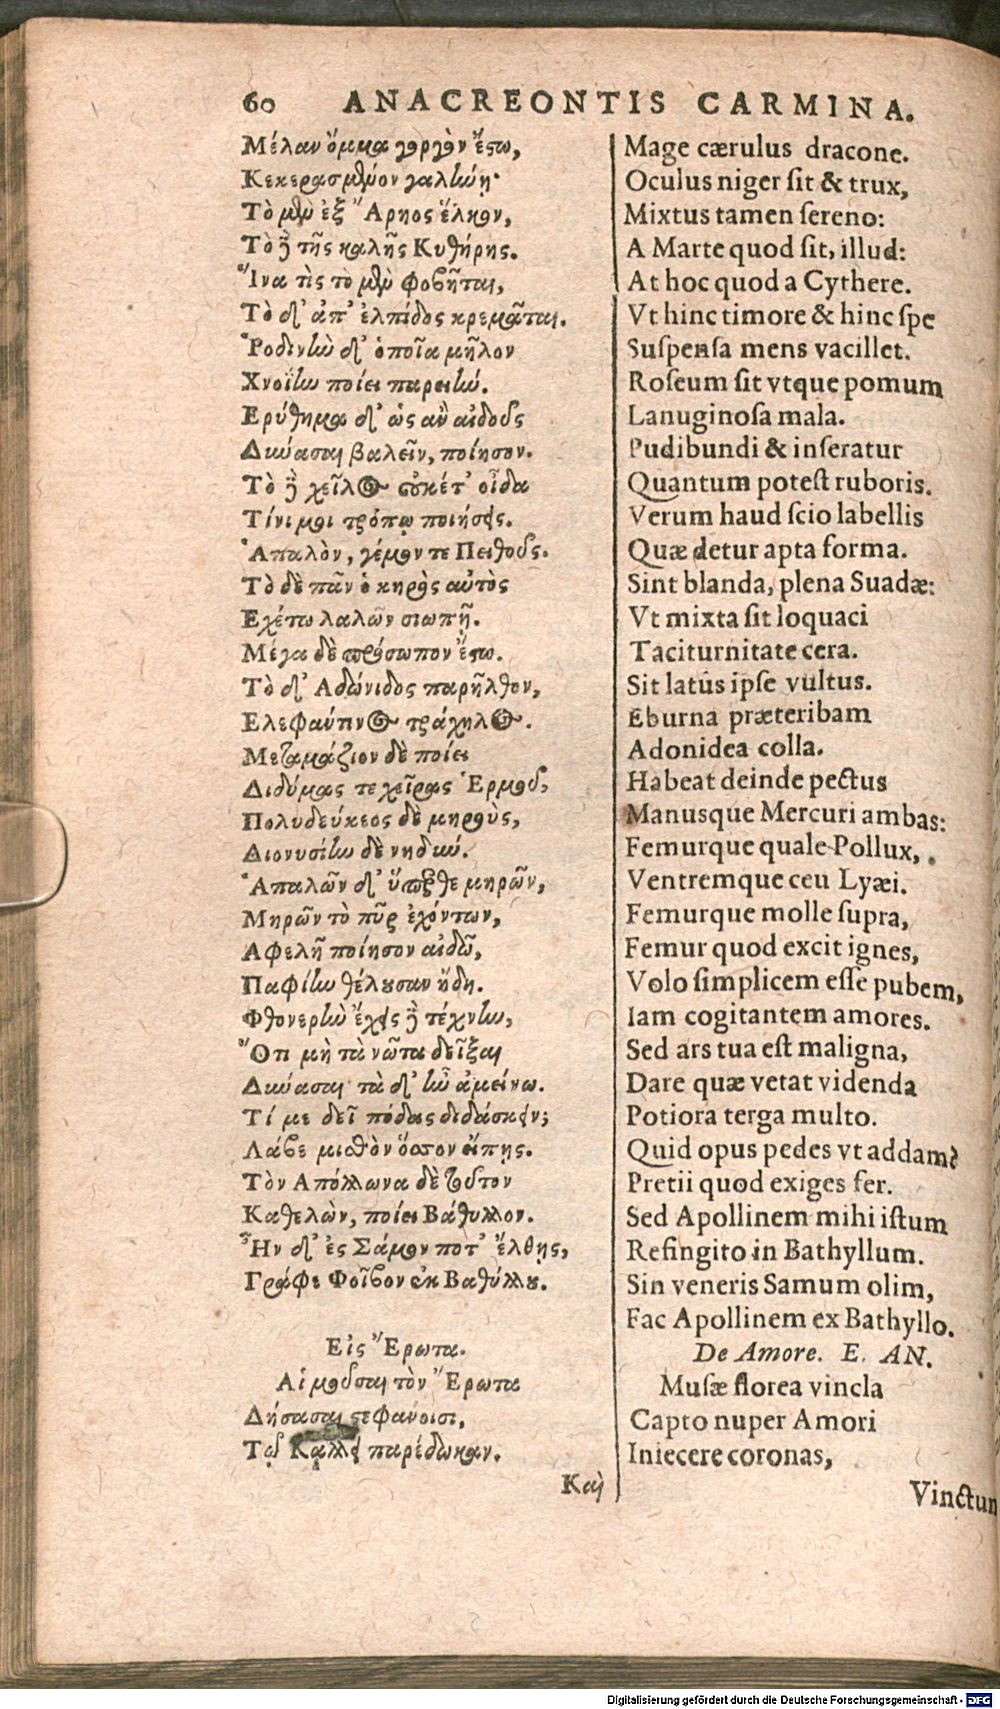 60 ANACREONTIS CARMINA.
Μέλαν ὄμμα γοργὸν ἔστω,
Κεκερασμένον γαλήνῃ·
Τὸ μὲν ἐξ Ἄρηος ἕλκον,
Τὸ δὲ τῆς καλῆς Κυθήρης.
Ἵνα τὶς τὸ μὲν φοβῆται,
Τὸ δ' ἀπ' ἐλπίδος κρεμᾶται.
Ῥοδίνην δ' ὁποῖα μῆλον
Χνοΐην ποίει παρειήν.
Ερύθημα δ' ὡς ἂν αἰδοῦς
Δύνασαι βαλεῖν, ποίησον.
Τὸ δὲ χεῖλος οὐκέτ' οἶδα
Τίνι μοι τρόπῳ ποιήσεις.
Ἁπαλὸν, γέμον τε Πειθοῦς.
Τὸ δὲ πᾶν ὁ κηρὸς αὐτὸς
Εχέτω λαλῶν σιωπῇ.
Μέγα δὲ πρόσωπον ἔστω.
Τὸ δ' Αδώνιδος παρῆλθον,
Ελεφάντινος τράχηλος.
Μεταμάζιον δὲ ποίει
Διδύμας τε χεῖρας Ἑρμοῦ,
Πολυδεύκεος δὲ μηροὺς,
Διονυσίην δὲ νηδύν.
Ἁπαλῶν δ' ὕπερθε μηρῶν,
Μηρῶν τὸ πῦρ ἐχόντων,
Αφελῆ ποίησον αἰδῶ,
Παφίην θέλουσαν ἤδη.
Φθονερὴν ἔχεις δὲ τέχνην,
Ὅτι μὴ τὰ νῶτα δεῖξαι
Δύνασαι· τὰ δ' ἦν ἀμείνω.
Τί με δεῖ πόδας διδάσκειν;
Λάβε μισθὸν ὅσσον εἴπῃς.
Τὸν Απόλλωνα δὲ τοῦτον
Καθελὼν, ποίει Βάθυλλον.
Ἢν δ' ἐς Σάμον ποτ' ἔλθῃς,
Γράφε Φοῖβον ἐκ Βαθύλλου.
Εἰς Ἔρωτα.
Αἱ μοῦσαι τὸν Ἔρωτα
Δήσασαι στεφάνοισι,
Τῷ Κάλλει παρέδωκαν.
Καὶ
Mage cærulus dracone.
Oculus niger sit & trux,
Mixtus tamen sereno:
A Marte quod sit, illud:
At hoc quod a Cythere.
Vt hinc timore & hinc spe
Suspensa mens vacillet.
Roseum sit vtque pomum
Lanuginosa mala.
Pudibundi & inseratur
Quantum potest ruboris.
Verum haud scio labellis
Quæ detur apta forma.
Sint blanda, plena Suadæ:
Vt mixta sit loquaci
Taciturnitate cera.
Sit latûs ipse vultus.
Eburna præteribam
Adonidea colla.
Habeat deinde pectus
Manusque Mercuri ambas:
Femurque quale Pollux,
Ventremque ceu Lyæi.
Femurque molle supra,
Femur quod excit ignes,
Volo simplicem esse pubem,
Iam cogitantem amores.
Sed ars tua est maligna,
Dare quæ vetat videnda
Potiora terga multo.
Quid opus pedes vt addam?
Pretii quod exiges fer.
Sed Apollinem mihi istum
Refingito in Bathyllum.
Sin veneris Samum olim,
Fac Apollinem ex Bathyllo.
De Amore. E. AN.
Musæ florea vincla
Capto nuper Amori
Iniecere coronas,
Vinctum
Digitalisierung gefördert durch die Deutsche Forschungsgemeinschaft - DFG